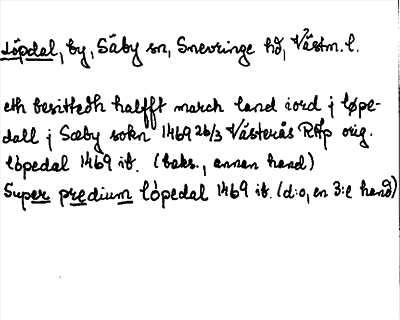 Löpdal, by, Säby sn, Snevringe hd, Västm. l.
eth besittedh halfft march land iord j løpe-
dall j Sæby sokn 1469 26/3 Västerås RAp orig.
lópedal 1469 ib. (baks., annan hand)
Super predium lópedal 1469 ib. (d:o, en 3:e hand)